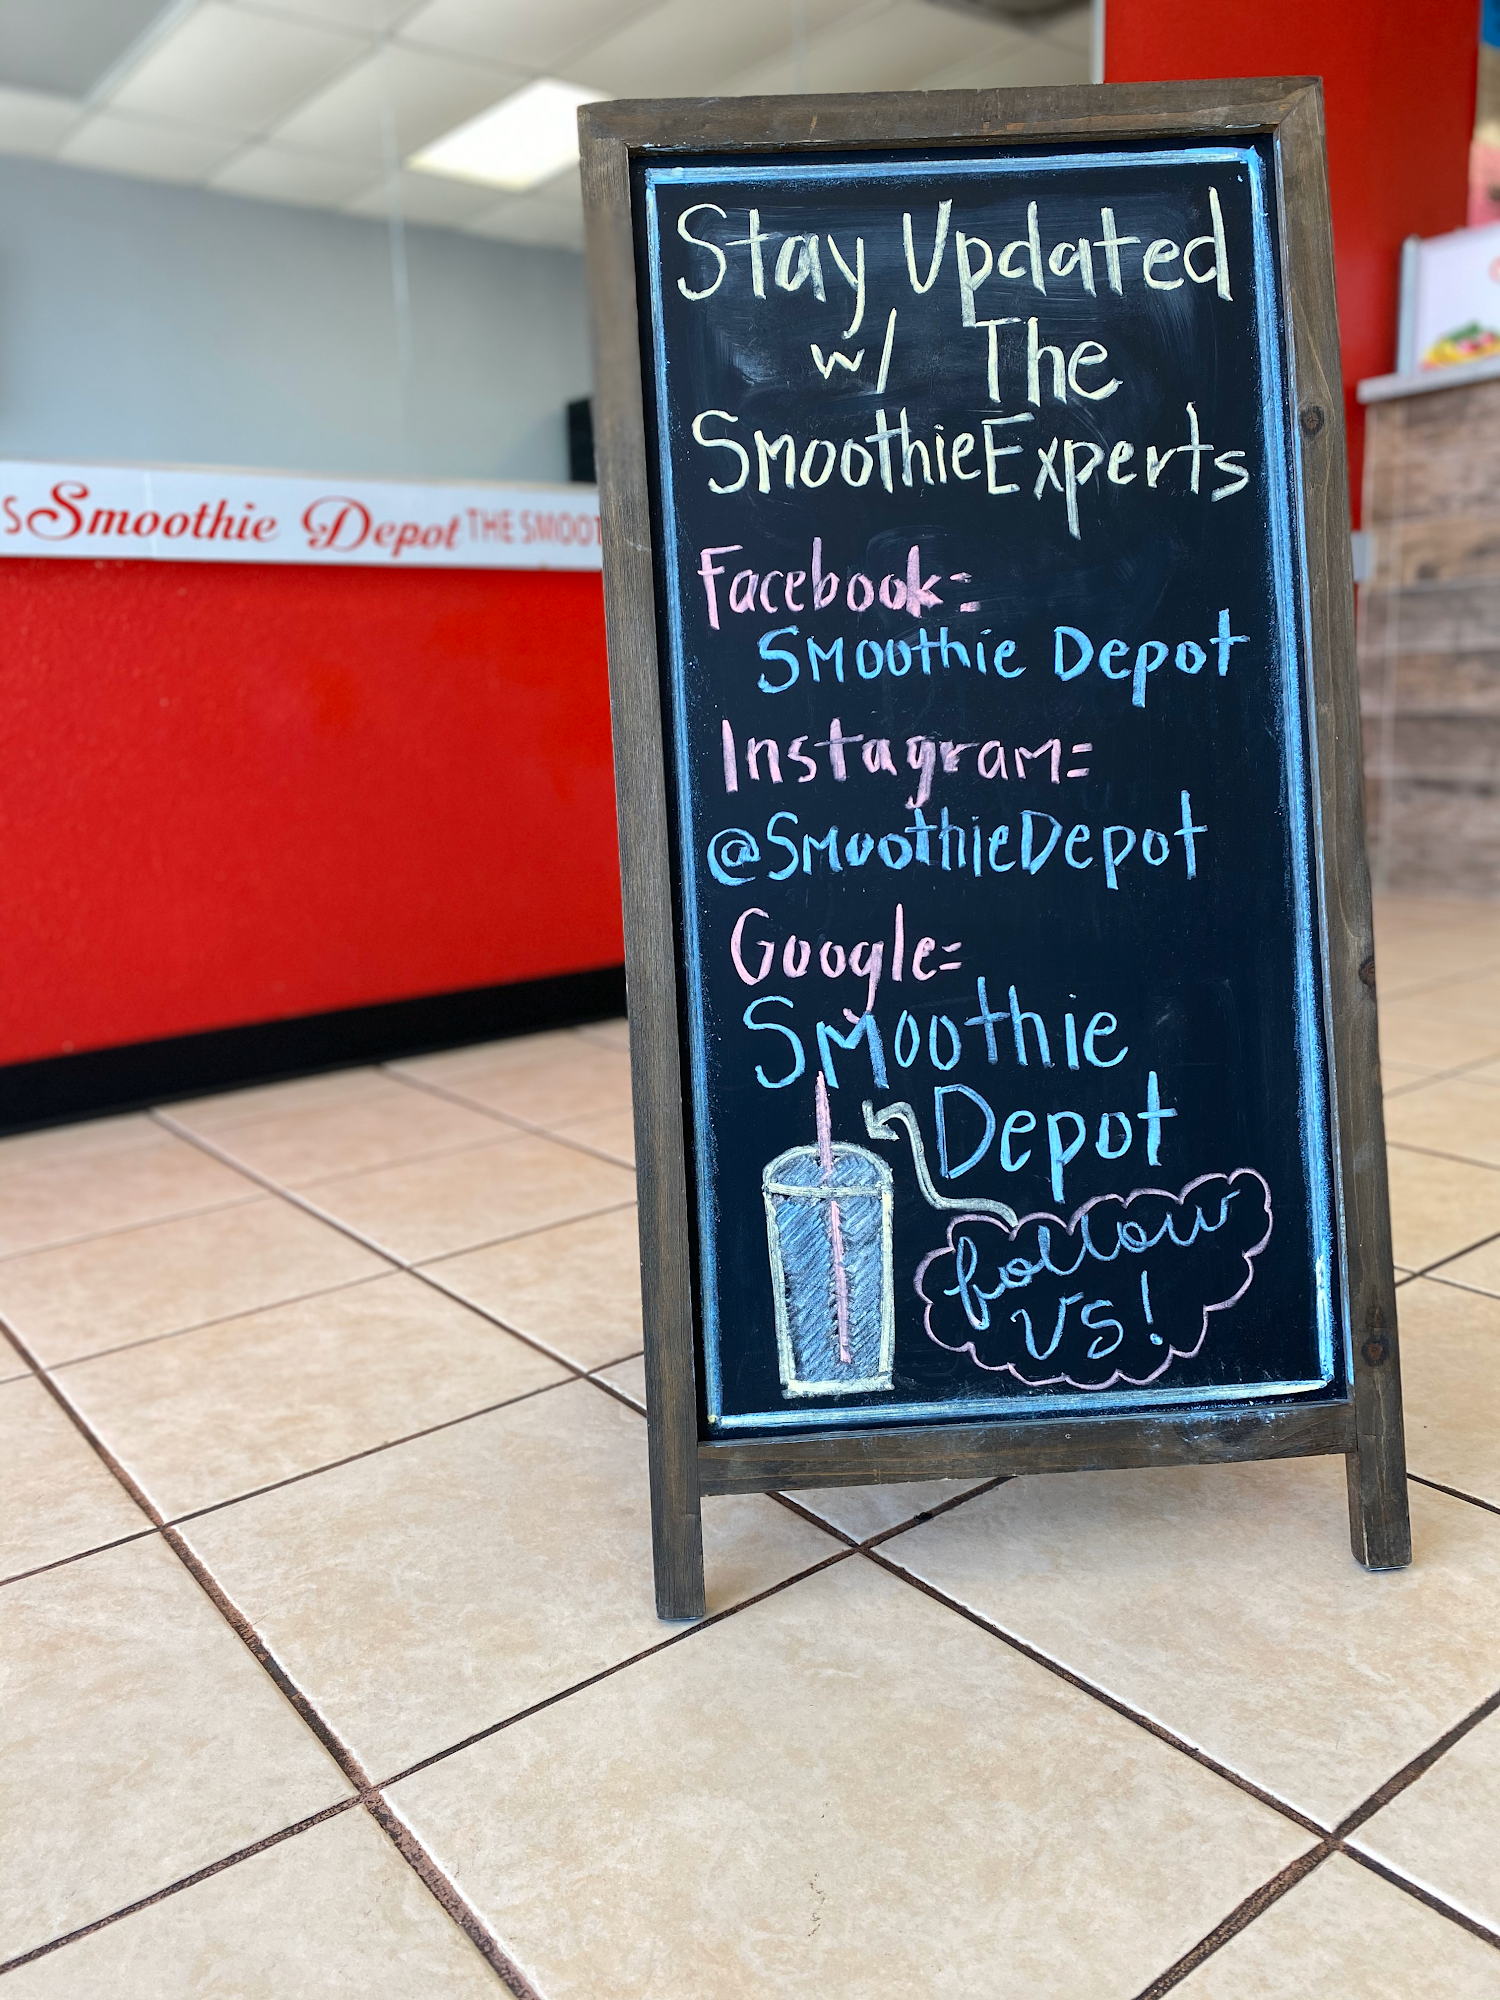 Stay Updated
w/ The
SmoothieExperts
Facebook:
Smoothie Depot
Instagram:
@SmoothieDepot
Google:
Smoothie
Depot
follow
us!
S Smoothie Depot THE SMOOT